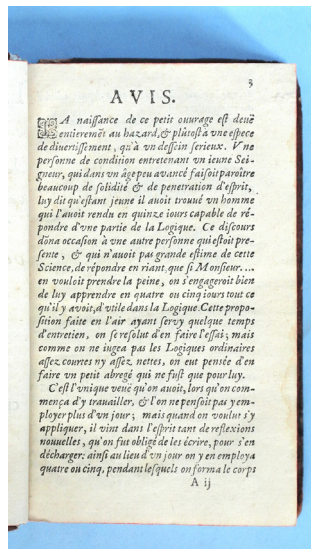 3
AVIS.
LA naiſſance de ce petit ouurage eſt deuë
entieremẽt au hazard, & plûtoſt à vne eſpece
de diuertiſſement, qu'à vn deſſein ſerieux. Vne
perſonne de condition entretenant vn ieune Sei-
gneur, qui dans vn âge peu avancé faiſoit paroître
beaucoup de ſolidité & de penetration d'eſprit,
luy dit qu'eſtant jeune il auoit trouué vn homme
qui l'auoit rendu en quinze iours capable de ré-
pondre d'vne partie de la Logique. Ce diſcours
dõna occaſion à vne autre perſonne qui eſtoit pre-
ſente, & qui n'auoit pas grande eſtime de cette
Science, de répondre en riant, que ſi Monſieur....
en vouloit prendre la peine, on s'engageroit bien
de luy apprendre en quatre ou cinq iours tout ce
qu'il y avoit, d'vtile dans la Logique. Cette propo-
ſition faite en l'air ayant ſervy quelque temps
d'entretien, on ſe reſolut d'en faire l'eſſai; mais
comme on ne iugea pas les Logiques ordinaires
aſſez courtes ny aſſez nettes, on eut penſée d'en
faire vn petit abregé qui ne fuſt que pour luy.
C'eſt l'vnique veuë qu'on auoit, lors qu'on com-
mença d'y travailler, & l'on ne penſoit pas y em-
ployer plus d'vn jour; mais quand on voulut s'y
appliquer, il vint dans l'eſprit tant de reflexions
nouuelles, qu'on fut obligé de les écrire, pour s'en
décharger: ainſi au lieu d'vn jour on y en employa
quatre ou cinq, pendant leſquels on forma le corps
A ij